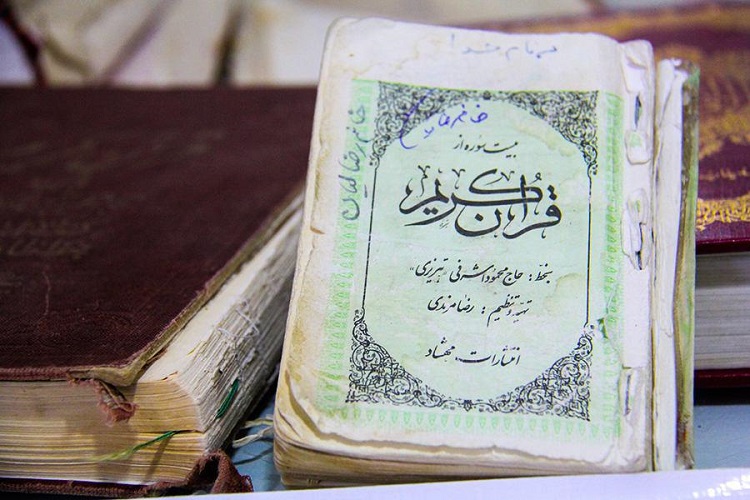 بنام خدا
خانم رضائیان
بیست سوره از
قرآن کریم
بخط: حاج محمود اشرفی "تبریزی"
تهیه و تنظیم: رضا مرندی
انتشارات مهشاد